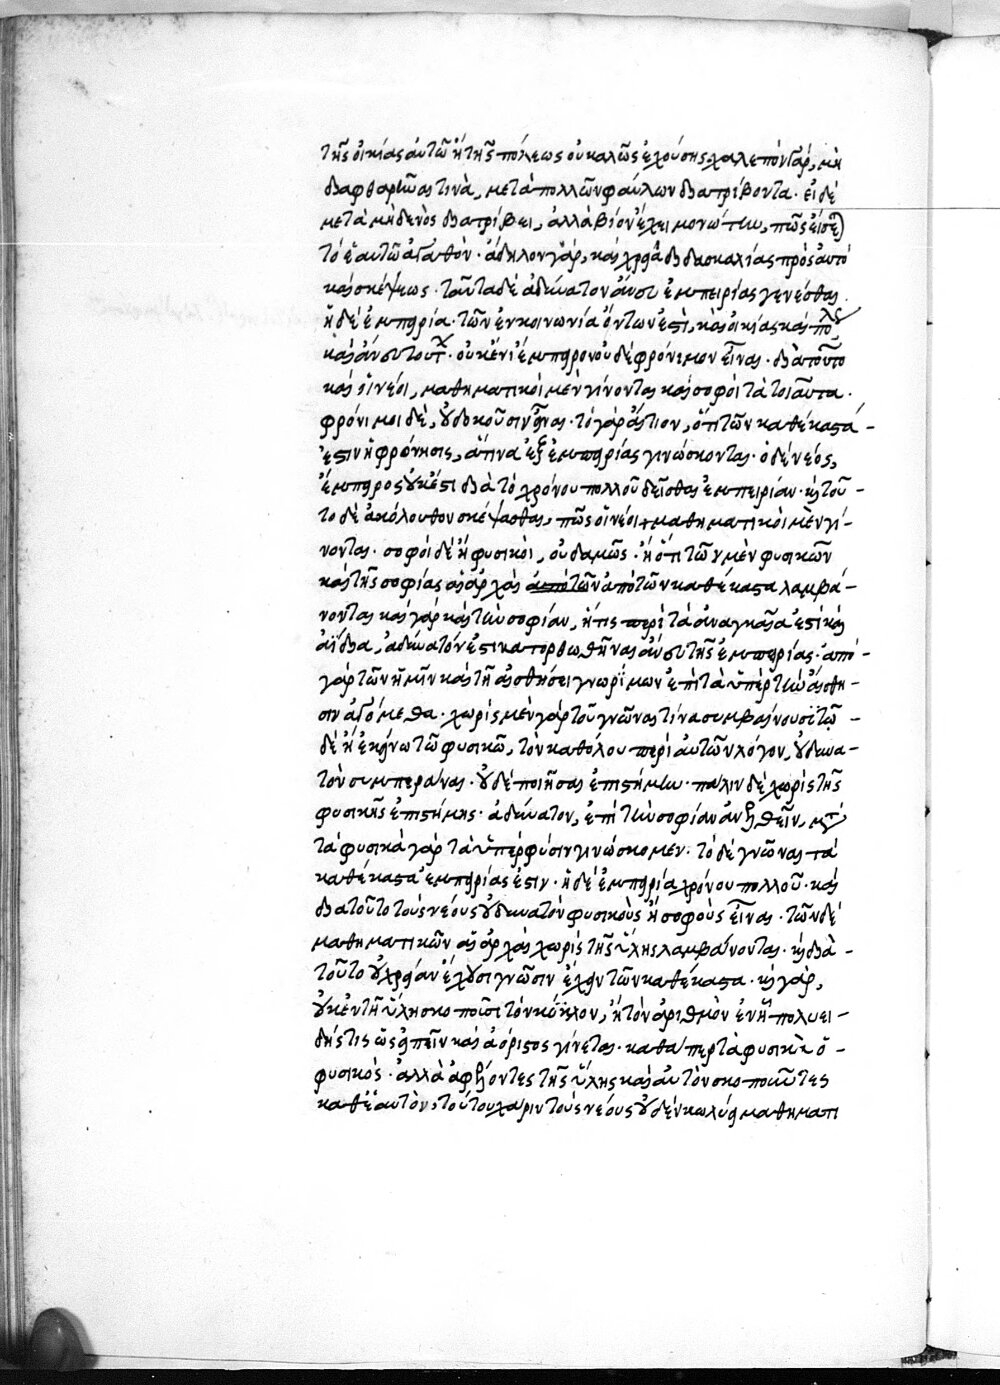 τῆς οἰκίας αὐτῶ ἢ τῆς πόλεως οὐ καλῶς ἐχούσης, χαλεπὸν γὰρ, μὴ
διαφθαρῆναι τινὰ, μετὰ πολλῶν φαύλων διατρίβοντα. εἰ δὲ
μετὰ μηδενὸς διατρίβει, ἀλλὰ βίον ἔχει μονώτην, πῶς εἴσε)
τὸ ἑαυτῶ ἀγαθὸν. ἄδηλον γὰρ, καὶ χρεία διδασκαλίας πρὸς αὐτὸ
καὶ σκέψεως. ταῦτα δὲ ἀδύνατον ἄνευ ἐμπειρίας γενέσθαι.
ἡ δὲ ἐμπειρία. τῶν ἐν κοινωνία ὄντων ἐστὶ, καὶ οἰκίας καὶ πόλεως
καὶ ἄνευ τούτων. οὐκ ἔνι ἔμπειρον οὐδὲ φρόνιμον εἶναι. διὰ τοῦτο
καὶ οἱ νέοι, μαθηματικοὶ μὲν γίνονται καὶ σοφοὶ τὰ τοιαῦτα.
φρόνιμοι δὲ, οὐ δοκοῦσιν εἶναι. τὸ γὰρ αἴτιον, ὅτι τῶν καθέκαστά-
ἐστιν ἡ φρόνησις, ἅτινα ἐξ ἐμπειρίας γινώσκονται. ὁ δὲ νέος,
ἔμπειρος οὐκ ἔστι διὰ τὸ χρόνου πολλοῦ δεῖσθαι ἐμπειρίαν. καὶ τού-
τo δὲ ἀκόλουθον σκέψασθαι, πῶς οἱ νέοι μαθηματικοὶ μὲν γί-
νονται. σοφοὶ δὲ ἢ φυσικοὶ, οὐδαμῶς. ἢ ὅτι τῶν μὲν φυσικῶν
καὶ τῆς σοφίας αἱ ἀρχαὶ ἀπὸ τῶν ἀπὸ τῶν καθέκαστα λαμβά-
νονται καὶ γὰρ καὶ τὴν σοφίαν, ἥτις περὶ τὰ ἀναγκαῖα ἐστὶ καὶ
ἀΐδια, ἀδύνατόν ἐστι κατορθωθῆναι ἄνευ τῆς ἐμπειρίας. ἀπὸ-
γὰρ τῶν ἡμῖν καὶ τῆ αἰσθήσει γνωρίμων ἐπὶ τὰ ὑπὲρ τὴν αἴσθη-
σιν ἀγόμεθα. χωρὶς μὲν γὰρ τοῦ γνῶναι τίνα συμβαίνουσι τῶ-
δὲ ἢ ἐκείνω τῶ φυσικῶ, τὸν καθόλου περὶ αὐτῶν λόγον, οὐ δυνα-
τὸν συμπερᾶναι. οὐδὲ ποιῆσαι ἐπιστήμην. πάλιν δὲ χωρὶς τῆς
φυσικῆς ἐπιστήμης. ἀδύνατον, ἐπὶ τὴν σοφίαν ἀνελθεῖν, μετὰ
τὰ φυσικὰ γὰρ τὰ ὑπὲρ φύσιν γινώσκομεν. τὸ δὲ γνῶναι τὰ
καθέκαστα ἐμπειρίας ἐστιν. ἡ δὲ ἐμπειρία χρόνου πολλοῦ. καὶ
διατοῦτο τοὺς νέους οὐ δυνατὸν φυσικοὺς ἢ σοφοὺς εἶναι. τῶν δὲ
μαθηματικῶν αἱ ἀρχαὶ χωρὶς τῆς ὕλης λαμβάνονται. καὶ διὰ-
τοῦτο οὐ χρείαν ἔχουσι γνῶσιν ἔχειν τῶν καθέκαστα. καὶ γὰρ,
οὐκ ἐν τῆ ὕλη σκοποῦσι τὸν κύκλον, ἢ τὸν ἀριθμὸν ἐν ἧ πολυει-
δής τις ὡς εἰπεῖν καὶ ἀόριστος γίνεται. καθάπερ τὰ φυσικὰ ὁ-
φυσικός. ἀλλὰ ἀφελόντες τῆς ὕλης καὶ αὐτὸν σκοποῦντες
καθἑαυτὸν, τούτου χάριν τοὺς νέους οὐδὲν κωλύει μαθηματι